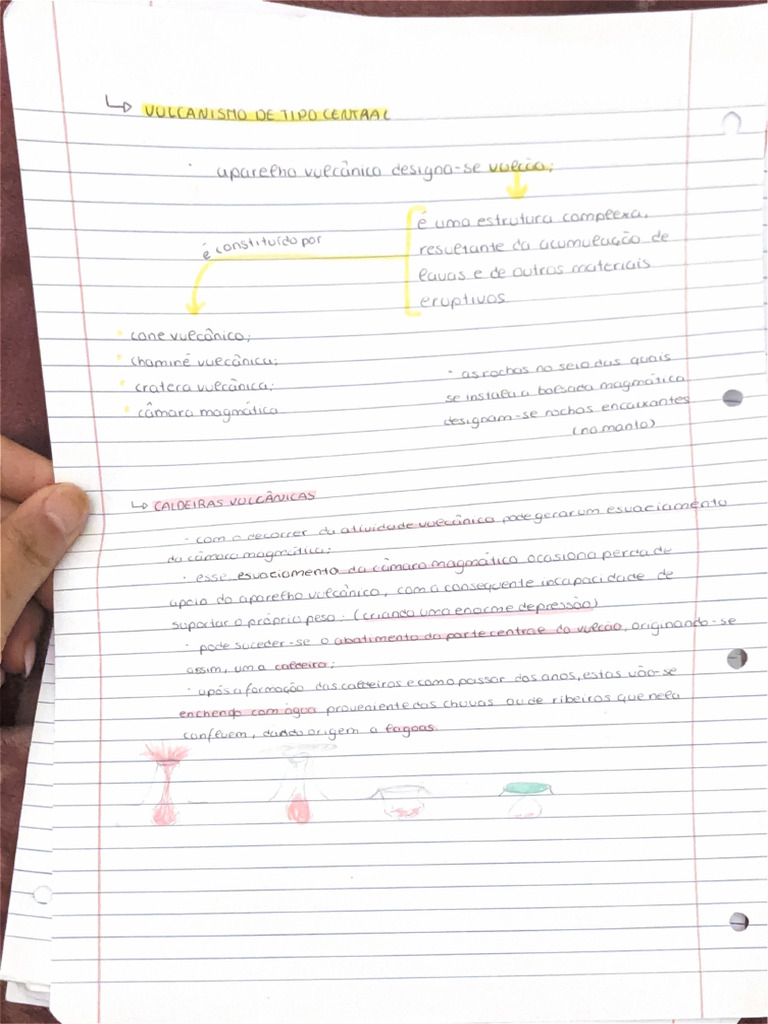 ↳ VULCANISMO DE TIPO CENTRAL
· aparelho vulcânico designa-se vulcão;
é uma estrutura complexa,
resultante da acumulação de
lavas e de outros materiais
eruptivos
é constituído por
· cone vulcânico;
· chaminé vulcânica;
· cratera vulcânica;
· câmara magmática
· as rochas no seio das quais
se instala a bolsada magmática
designam-se rochas encaixantes
(no manto)
↳ CALDEIRAS VULCÂNICAS
- com o decorrer da atividade vulcânica pode gerar um esvaziamento
da câmara magmática;
· esse esvaziamento da câmara magmática ocasiona perda de
apoio do aparelho vulcânico, com a consequente incapacidade de
suportar o próprio peso: (criando uma enorme depressão)
· pode suceder-se o abatimento da parte central do vulcão, originando-se
assim, uma caldeira;
· após a formação das caldeiras e com o passar dos anos, estas vão-se
enchendo com água proveniente das chuvas ou de ribeiros que nela
confluem, dando origem a lagoas.